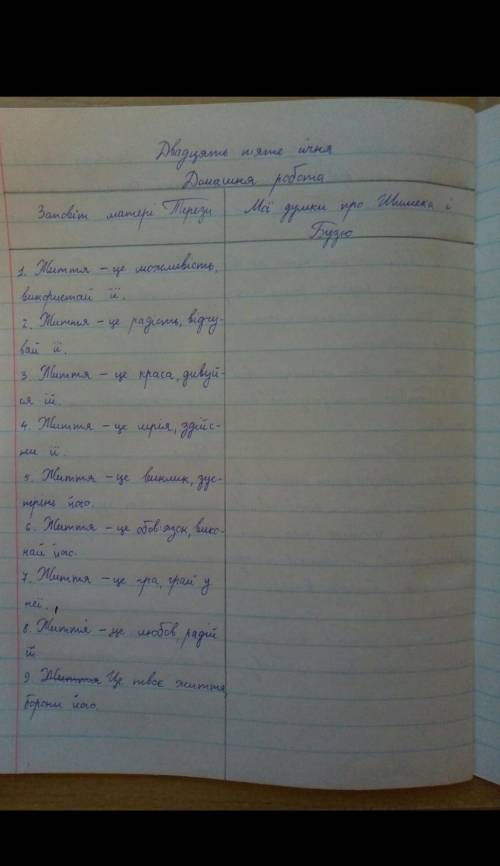 Двадцять п'яте січня
Домашня робота
Заповіт матері Терези
Мої думки про Шимека і
Бузю
1. Життя – це можливість,
використай її.
2. Життя – це радість, відчу-
вай її.
3. Життя – це краса, дивуй-
ся їй.
4. Життя – це мрія, здійс-
ни її.
5. Життя – це виклик, зус-
трінь його.
6. Життя – це обов'язок, вико-
най його.
7. Життя – це гра, грай у
неї.
8. Життя – це любов, радій
їй
9 Життя Це твоє життя,
борони його.